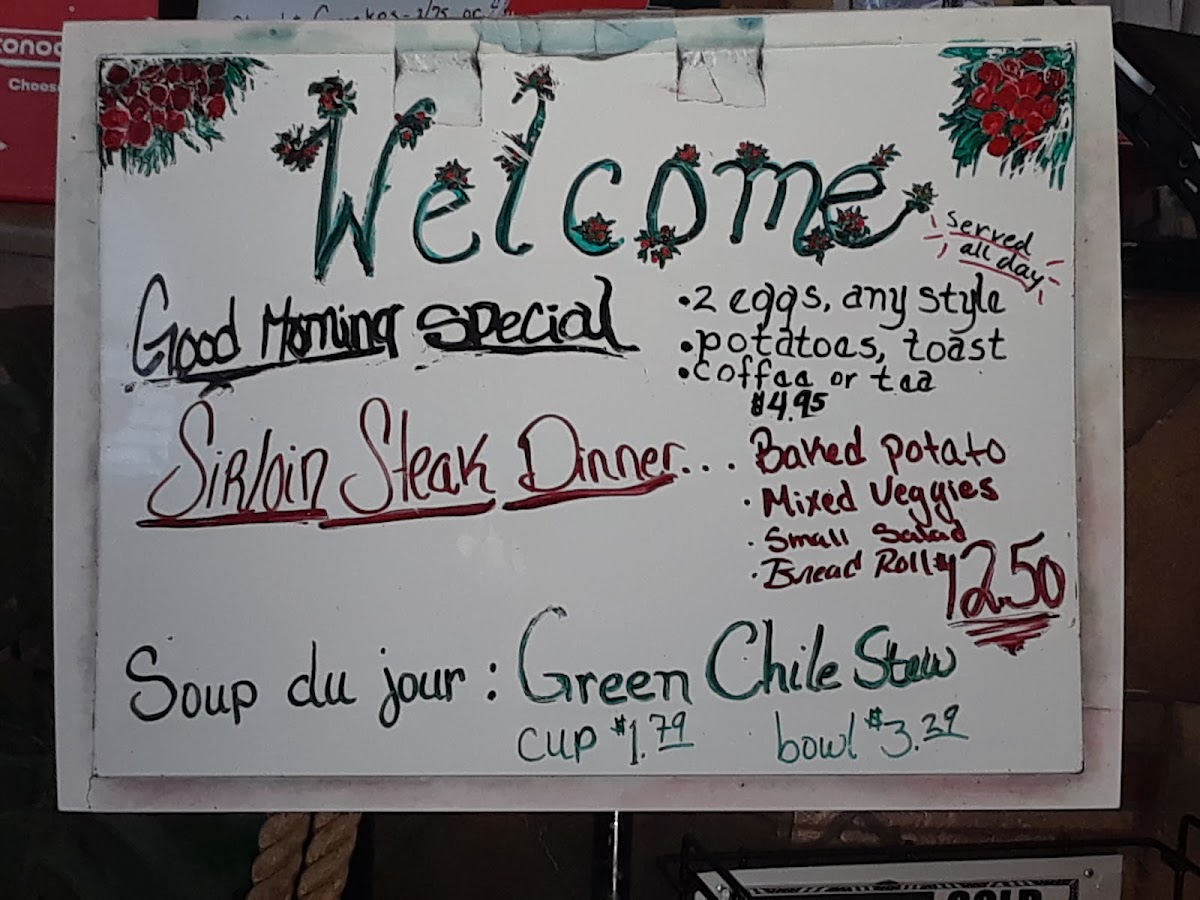 Welcome
Served
all day
Good Morning Special
•2 eggs, any style
•potatoes, toast
•coffee or tea
$4.95
Sirloin Steak Dinner...
Baked potato
• Mixed Veggies
• Small Salad
• Bread Roll $12.50
Soup du jour : Green Chile Stew
cup $1.79 bowl $3.29
Choose